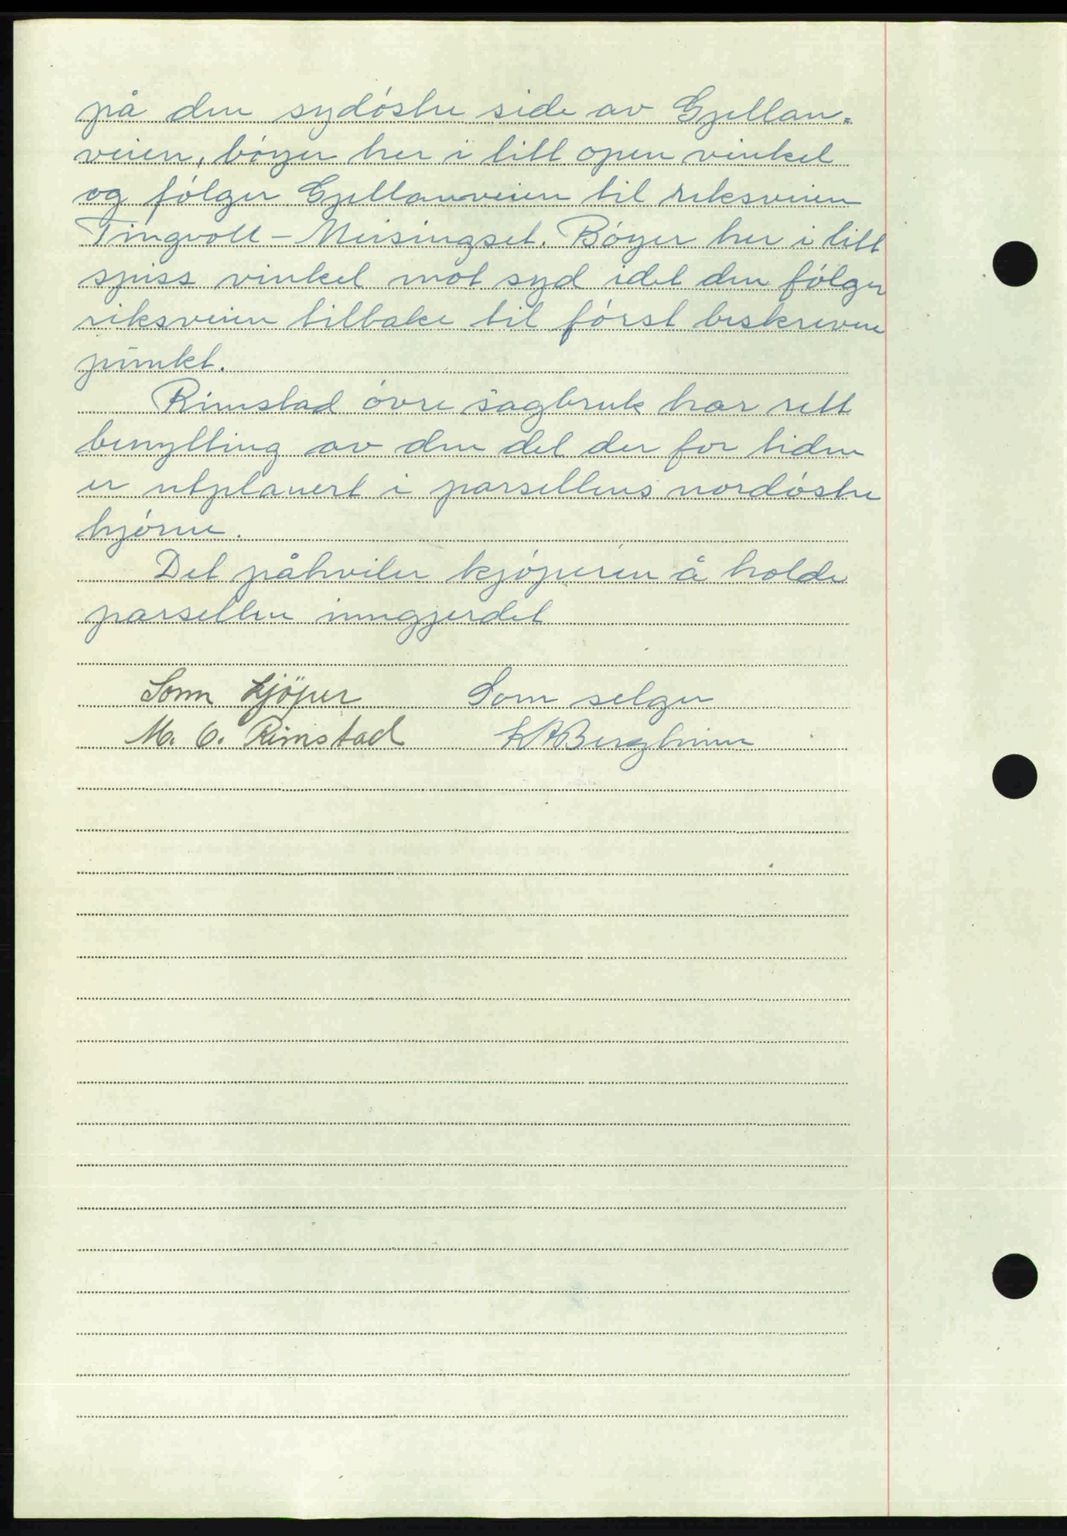 på den sydóstre side av Gjellan-
veien, bóyer her i litt open vinkel
og fólger Gjellanveien til riksveien
Tingvoll - Meisingset. Bóyer her i litt
spiss vinkel mot syd idet den fólger
riksveien tilbake til fórst beskrevne
punkt.
Rimstad óvre sagbruk har rett
benytting av den del der for tiden
er utplanert i parsellens nordóstre
hjórne.
Det påhviler kjóperen å holde
parsellen inngjerdet
Som kjöper Som selger
M. O. Rimstad